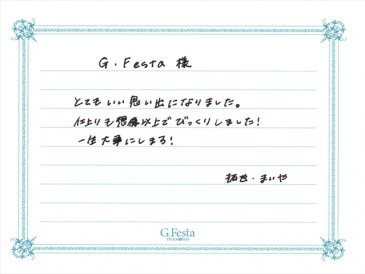 G.Festa 様
とてもいい思い出になりました。
仕上りも想像以上でびっくりしました!
一生大事にしまる!
拓也・まいや
G.Festa
DIAMOND